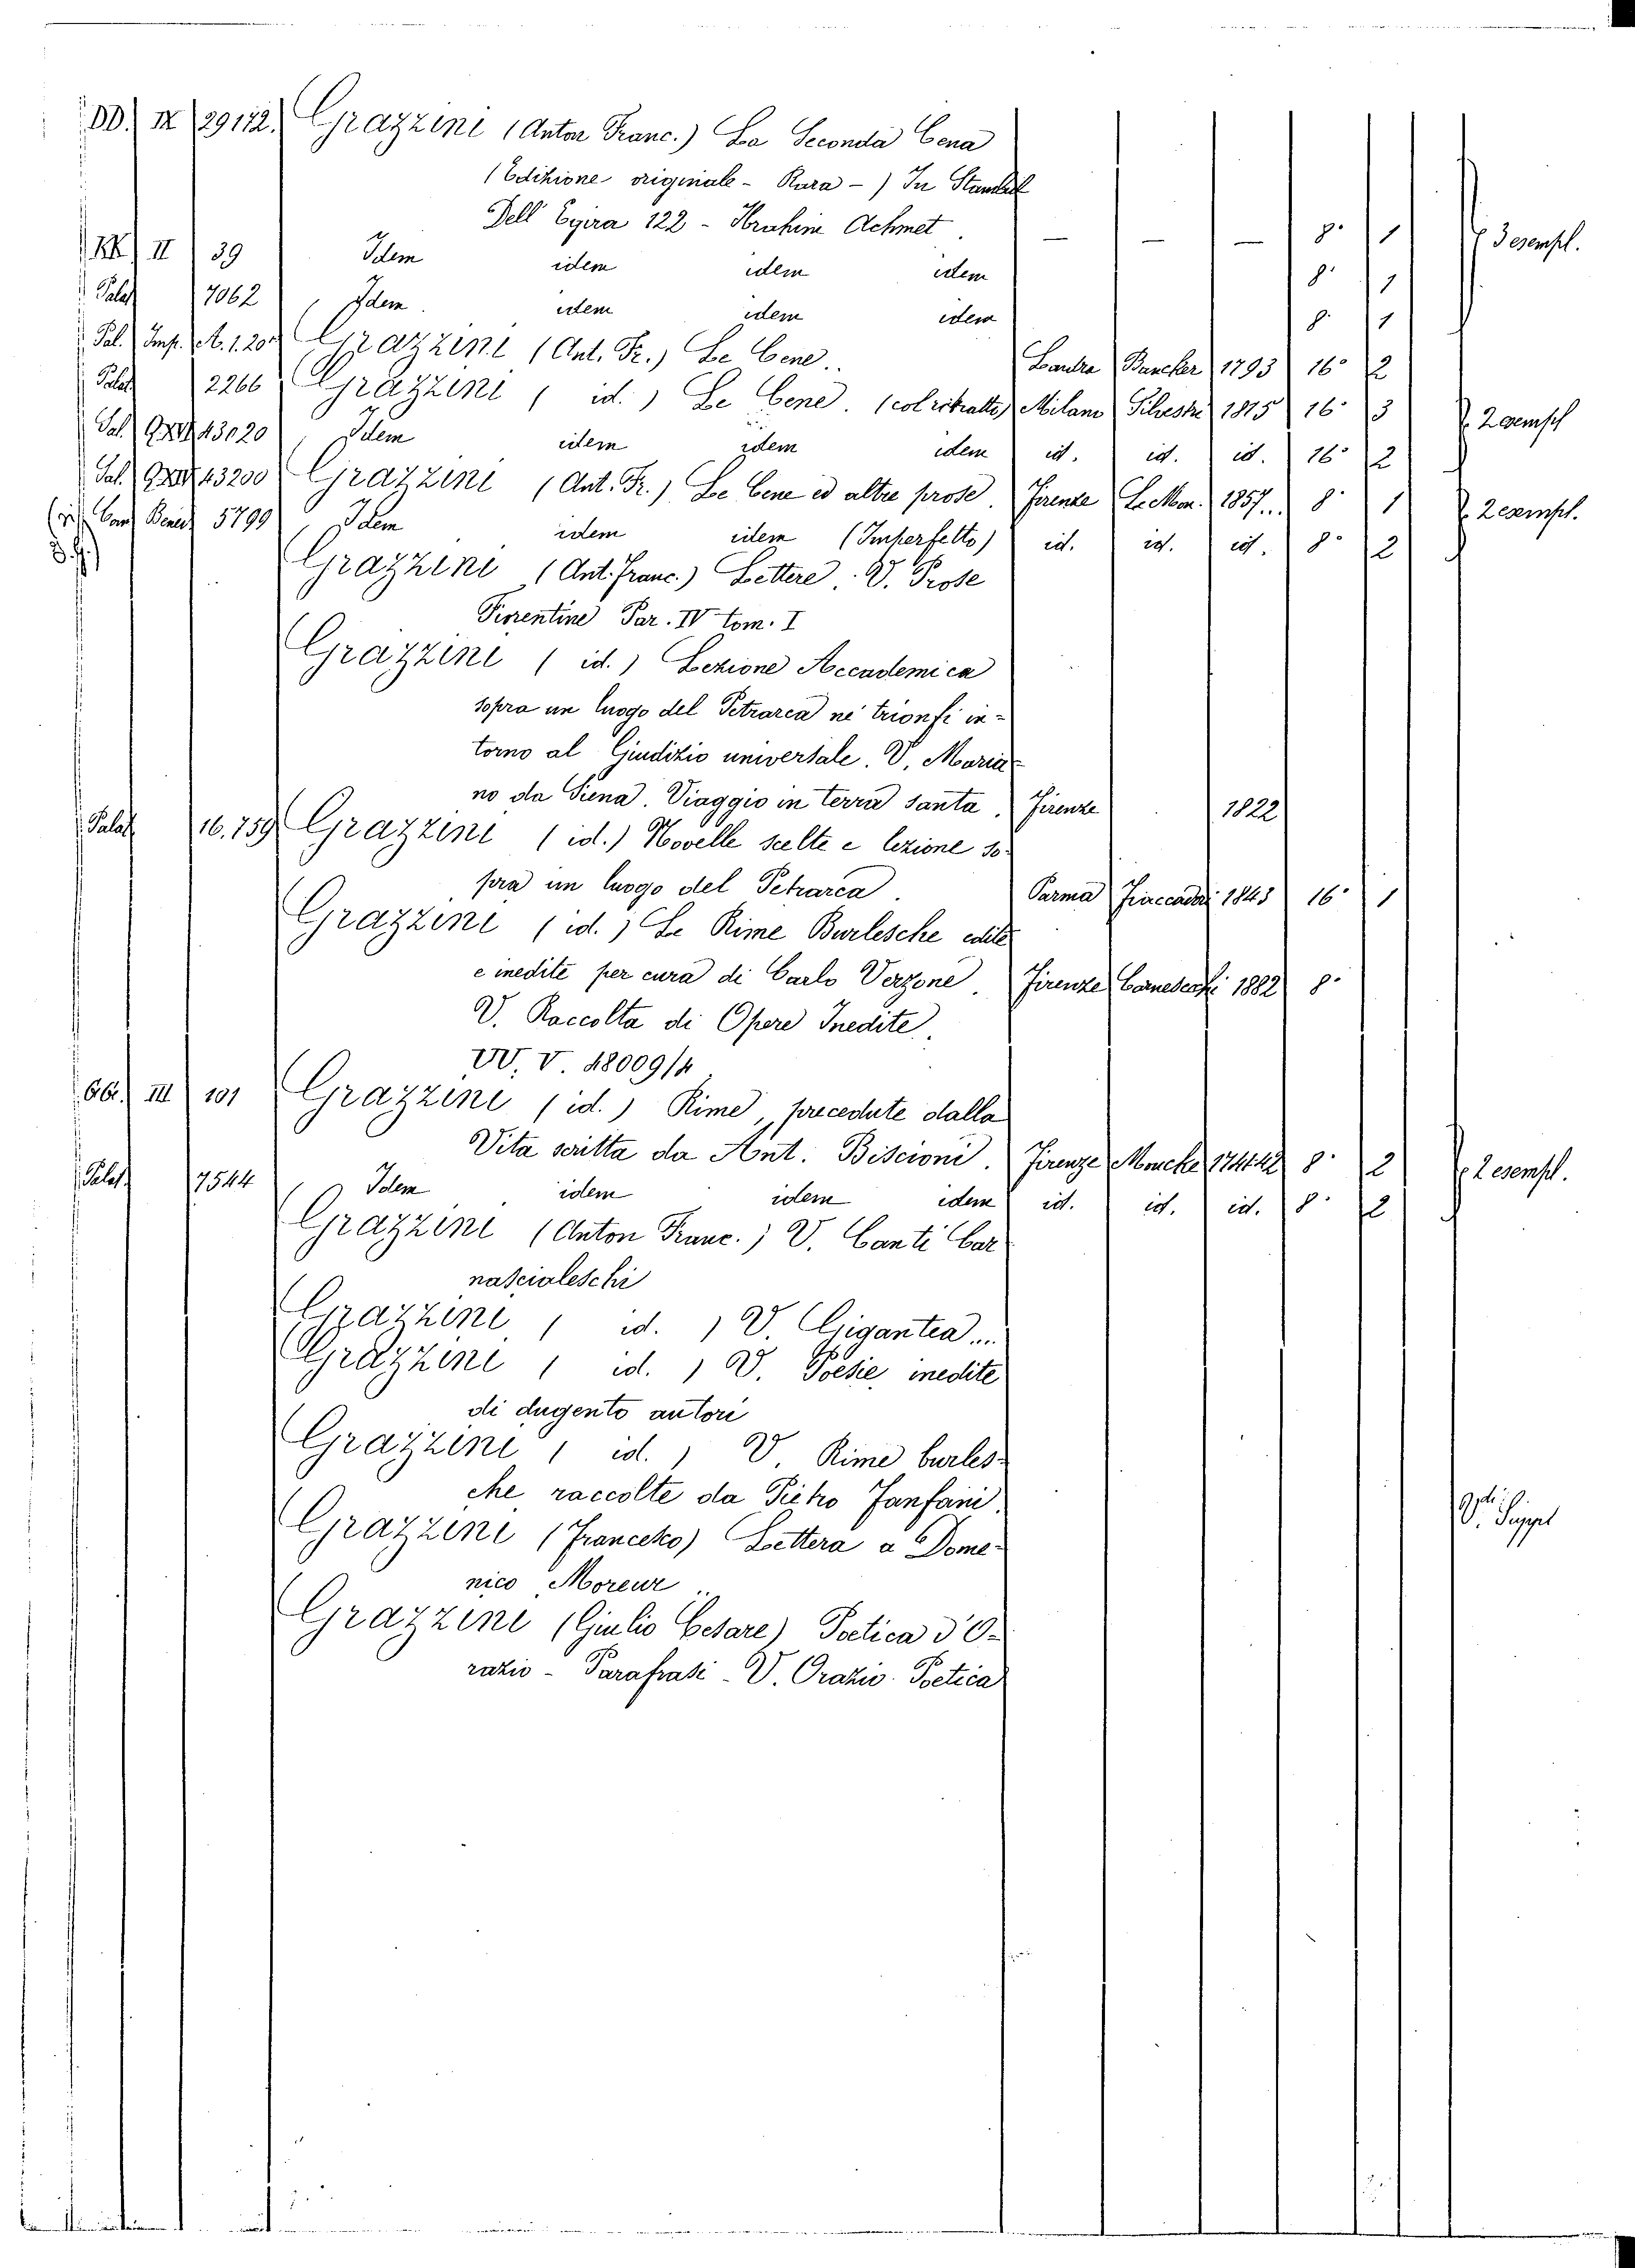 DD. IX 29172. Grazzini (Anton Franc.) La Seconda Cena
(Edizione originale - Rara -) In Stambul
Dell' Egira 122 - Ibrahim Achmet. — — — 8° 1 3 esempl.
KK II 39 Idem idem idem idem 8° 1
Palat 7062 Idem. idem idem idem 8° 1
Pal. Imp. A. 1. 20 Grazzini (Ant. Fr.) Le Cene. Londra Bancker 1793 16° 2
Palat 2266 Grazzini (id.) Le Cene. (col ritratto) Milano Silvestri 1815 16° 3 2 esempl
Sal. 43020 Idem idem idem idem id. id. id. 16° 2
Sal. 43200 Grazzini (Ant. Fr.) Le Cene ed altre prose. Firenze Le Mon. 1857.. 8° 1 2 esempl.
5799 Idem idem idem (Imperfetto) id. id. id. 8° 2
Grazzini (Ant. Franc.) Lettere. V. Prose
Fiorentine Par. IV tom. I
Grazzini (id.) Lezione Accademica
sopra un luogo del Petrarca ne' trionfi in-
torno al Giudizio universale. V. Maria-
no da Siena. Viaggio in terra santa. Firenze 1822
Palat 16.759 Grazzini (id.) Novelle scelte e lezione so-
pra un luogo del Petrarca. Parma Fiaccadori 1843 16° 1
Grazzini (id.) Le Rime Burlesche edite
e inedite per cura di Carlo Verzone. Firenze Carnesecchi 1882 8°
V. Raccolta di Opere Inedite.
VV. V. 18009/4
GG. III 101 Grazzini (id.) Rime, precedute dalla
Vita scritta da Ant. Biscioni. Firenze Moucke 1741.42 8° 2 2 esempl.
Palat. 7544 Idem idem idem idem id. id. id. 8° 2
Grazzini (Anton Franc.) V. Canti Car
nascialeschi
Grazzini (id.) V. Gigantea...
Grazzini (id.) V. Poesie inedite
di dugento autori
Grazzini (id.) V. Rime burles-
che raccolte da Pietro Fanfani.
Grazzini (Francesco) Lettera a Dome- V. Suppl
nico Moreni
Grazzini (Giulio Cesare) Poetica d'O-
razio - Parafrasi - V. Orazio. Poetica